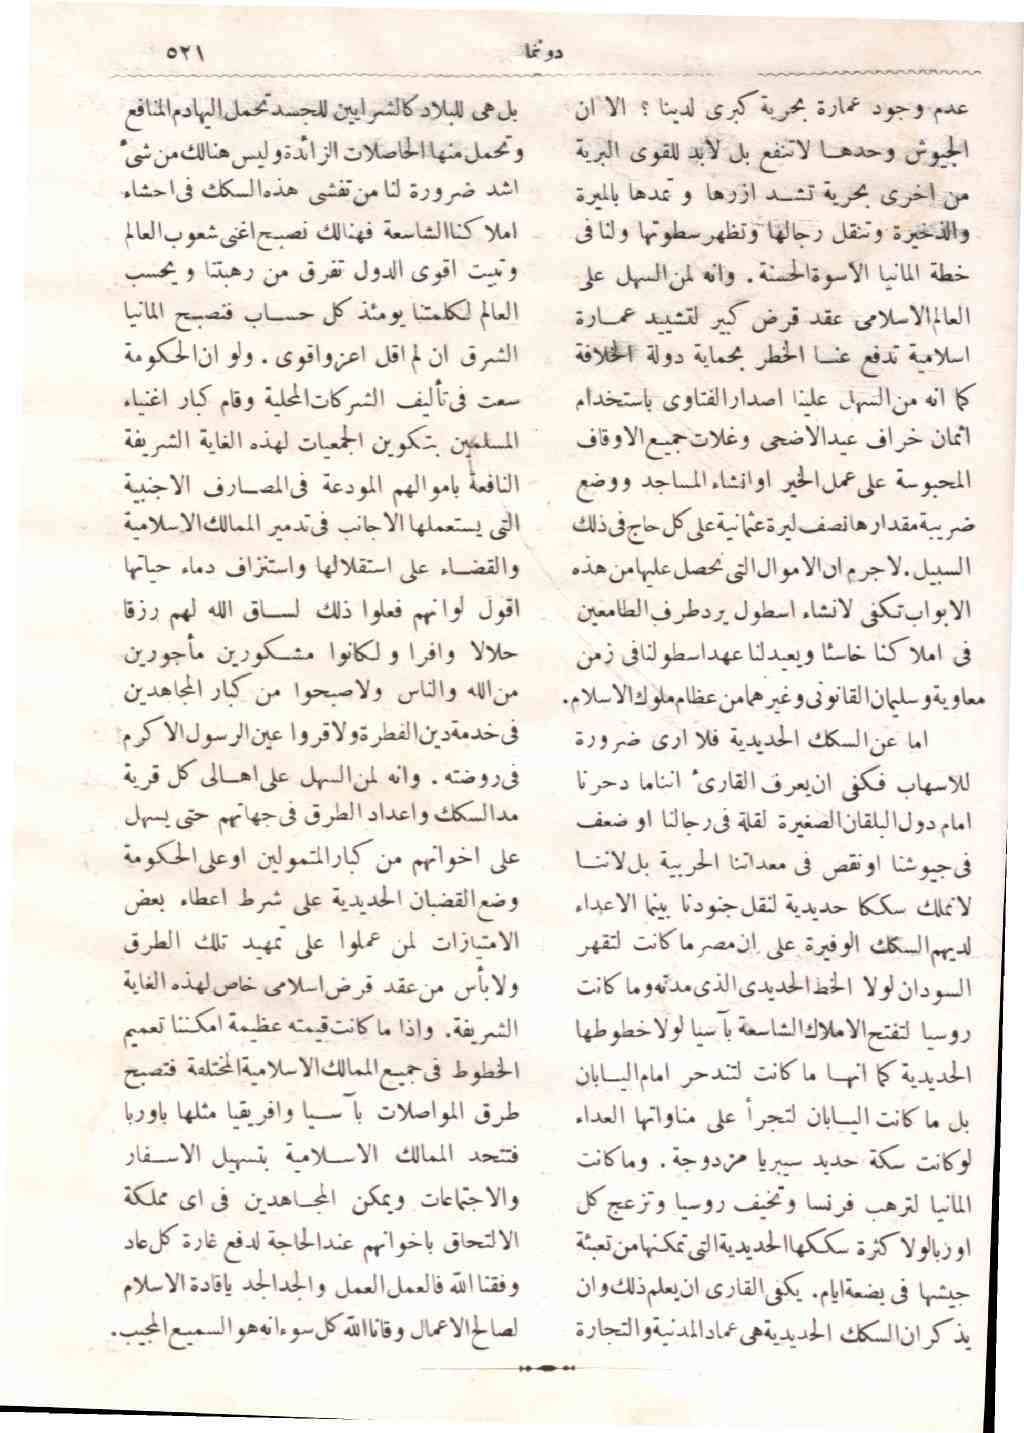 دونما
٥٢١
عدم وجود عمارة بحرية كبرى لدينا ؟ الا ان
الجيوش وحدهـا لاتنفع بل لابد للقوى البرية
من اخرى بحرية تشـد ازرها و تمدها بالميرة
والذخيرة وتنقل رجالها وتظهر سطوتها ولنا فى
خطة المانيا الأسوة الحسنة . وانه لمن السهل على
العالم الاسلامى عقد قرض كبير لتشييد عمـارة
اسلامية تدفع عنـا الخطر بحماية دولة الخلافة
كما انه من السهل علينا اصدار الفتاوى باستخدام
اثمان خراف عيد الاضحى وغلات جميع الاوقاف
المحبوسة على عمل الخير او انشاء المساجد ووضع
ضريبة مقدارها نصف ليرة عثمانية على كل حاج فى ذلك
السبيل . لاجرم ان الاموال التى نحصل عليها من هذه
الابواب تكفى لانشاء اسطول يرد طرف الطامعين
فى املاكنا خاسئا ويعيد لنا عهد اسطولنا فى زمن
معاوية وسليمان القانونى وغيرهما من عظام ملوك الاسلام .
اما عن السكك الحديدية فلا ارى ضرورة
للاسهاب فكفى ان يعرف القارئ اننا ما دحرنا
امام دول البلقان الصغيرة لقلة فى رجالنا او ضعف
فى جيوشنا او نقص فى معداتنا الحربية بل لاننـا
لانملك سككا حديدية لنقل جنودنا بينما الاعداء
لديهم السكك الوفيرة على ان مصر ما كانت لتقهر
السودان لولا الخط الحديدى الذى مدته وما كانت
روسيا لتفتح الاملاك الشاسعة بآسيا لولا خطوطها
الحديدية كما انهـا ما كانت لتندحر امام اليـابان
بل ما كانت اليـابان لتجرأ على مناواتها العداء
لو كانت سكة حديد سيبريا مزدوجة . وما كانت
المانيا لترهب فرنسا وتخيف روسيا وتزعج كل
اوربا لولا كثرة سككها الحديدية التى تمكنها من تعبئة
جيشها فى بضعة ايام . يكفى القارى ان يعلم ذلك وان
يذكر ان السكك الحديدية هى عماد المدنية والتجارة
بل هى للبلاد كالشرايين للجسد تحمل اليها دم المنافع
وتحمل منها الحاصلات الزائدة وليس هنالك من شىء
اشد ضرورة لنا من تفشى هذه السكك فى احشاء
املاكنا الشاسعة فهنالك نصبح اغنى شعوب العالم
وتبيت اقوى الدول تفرق من رهبتنا ويحسب
العالم لكلمتنا يومئذ كل حسـاب فنصبح المانيا
الشرق ان لم اقل اعز واقوى . ولو ان الحكومة
سعت فى تأليف الشركات المحلية وقام كبار اغنياء
المسلمين بتكوين الجمعيات لهذه الغاية الشريفة
النافعة باموالهم المودعة فى المصـارف الاجنبية
التى يستعملها الاجانب فى تدمير الممالك الاسلامية
والقضـاء على استقلالها واستنزاف دماء حياتها
اقول لو انهم فعلوا ذلك لسـاق الله لهم رزقا
حلالا وافرا و لكانوا مشـكورين مأجورين
من الله والناس ولاصبحوا من كبار المجاهدين
فى خدمة دين الفطرة ولاقروا عين الرسول الاكرم
فى روضته . وانه لمن السهل على اهـالى كل قرية
مد السكك واعداد الطرق فى جهاتهم حتى يسهل
على اخوانهم من كبار المتمولين او على الحكومة
وضع القضبان الحديدية على شرط اعطاء بعض
الامتيازات لمن عملوا على تمهيد تلك الطرق
ولا بأس من عقد قرض اسلامى خاص لهذه الغاية
الشريفة . واذا ما كانت قيمته عظيمة امكننا تعميم
الخطوط فى جميع الممالك الاسلامية المختلفة فتصبح
طرق المواصلات بآسـيا وافريقيا مثلها باوربا
فتتحد الممالك الاسـلامية بتسهيل الاسـفار
والاجتماعات ويمكن المجـاهدين فى اى مملكة
الالتحاق باخوانهم عند الحاجة لدفع غارة كل عاد
وفقنا الله فالعمل العمل والجد الجد ياقادة الاسلام
لصالح الاعمال وقانا الله كل سوء انه هو السميع المجيب .